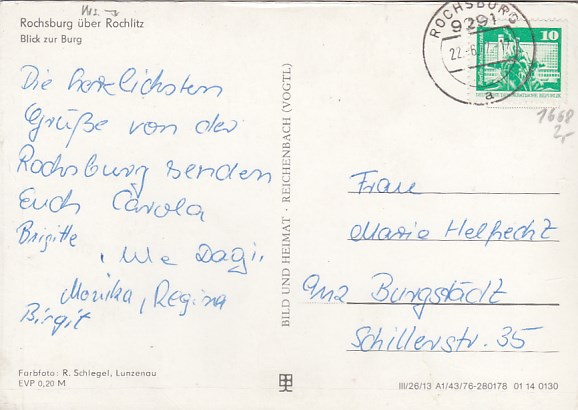 Rochsburg über Rochlitz
Blick zur Burg
Die herzlichsten
Grüße von der
Rochsburg senden
Euch Carola
Brigitte
, Ute Dagi,
Monika, Regina
Birgit
Farbfoto: R. Schlegel, Lunzenau
EVP 0,20 M
BILD UND HEIMAT · REICHENBACH (VOGTL)
ROCHSBURG
9291
22.-6.
a
10
1668
2,-
Frau
Maria Helfrecht
9112 Burgstädt
Schillerstr. 35
III/26/13 A1/43/76-280178 01 14 0130